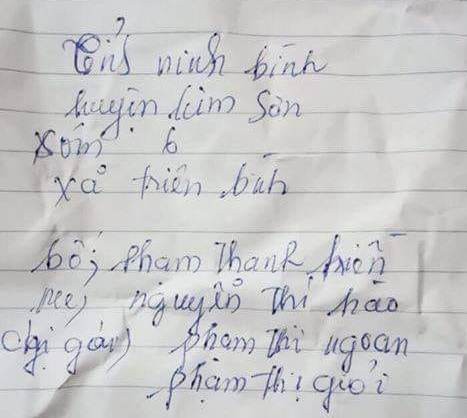 Tỉnh ninh bình
huyện kim Sơn
xóm 6
xã triên bình
bố; Phạm Thanh triển
mẹ; nguyễn Thị hào
chị gái) Phạm Thi ngoan
Phạm Thị giới